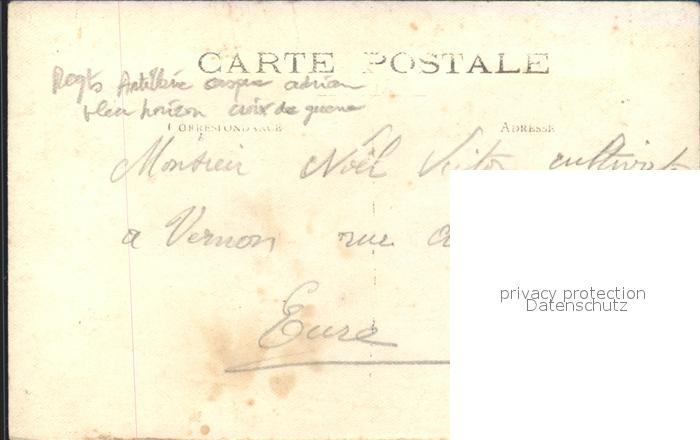 CARTE POSTALE
Regts Artillerie casque adrian
bleu horizon croix de guerre
CORRESPONDANCE ADRESSE
Monsieur Noël Victor cultivat
a Vernon rue
Eure
privacy protection
Datenschutz